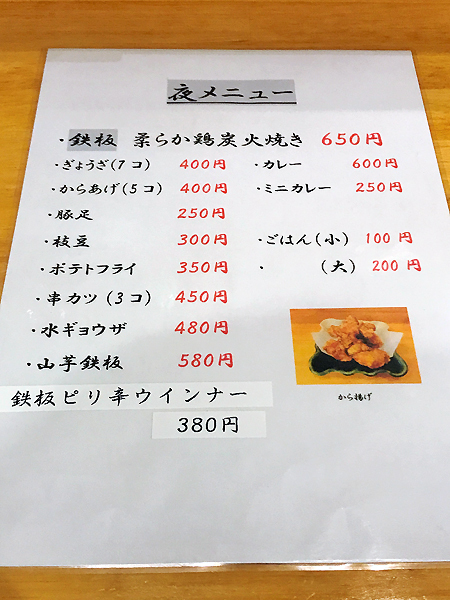 夜メニュー
・鉄板 柔らか鶏炭火焼き 650円
・ぎょうざ(7コ) 400円 ・カレー 600円
・からあげ(5コ) 400円 ・ミニカレー 250円
・豚足 250円
・枝豆 300円 ・ごはん(小) 100円
・ポテトフライ 350円 ・ (大) 200円
・串カツ(3コ) 450円
・水ギョウザ 480円
・山芋鉄板 580円
から揚げ
鉄板ピリ辛ウインナー
380円